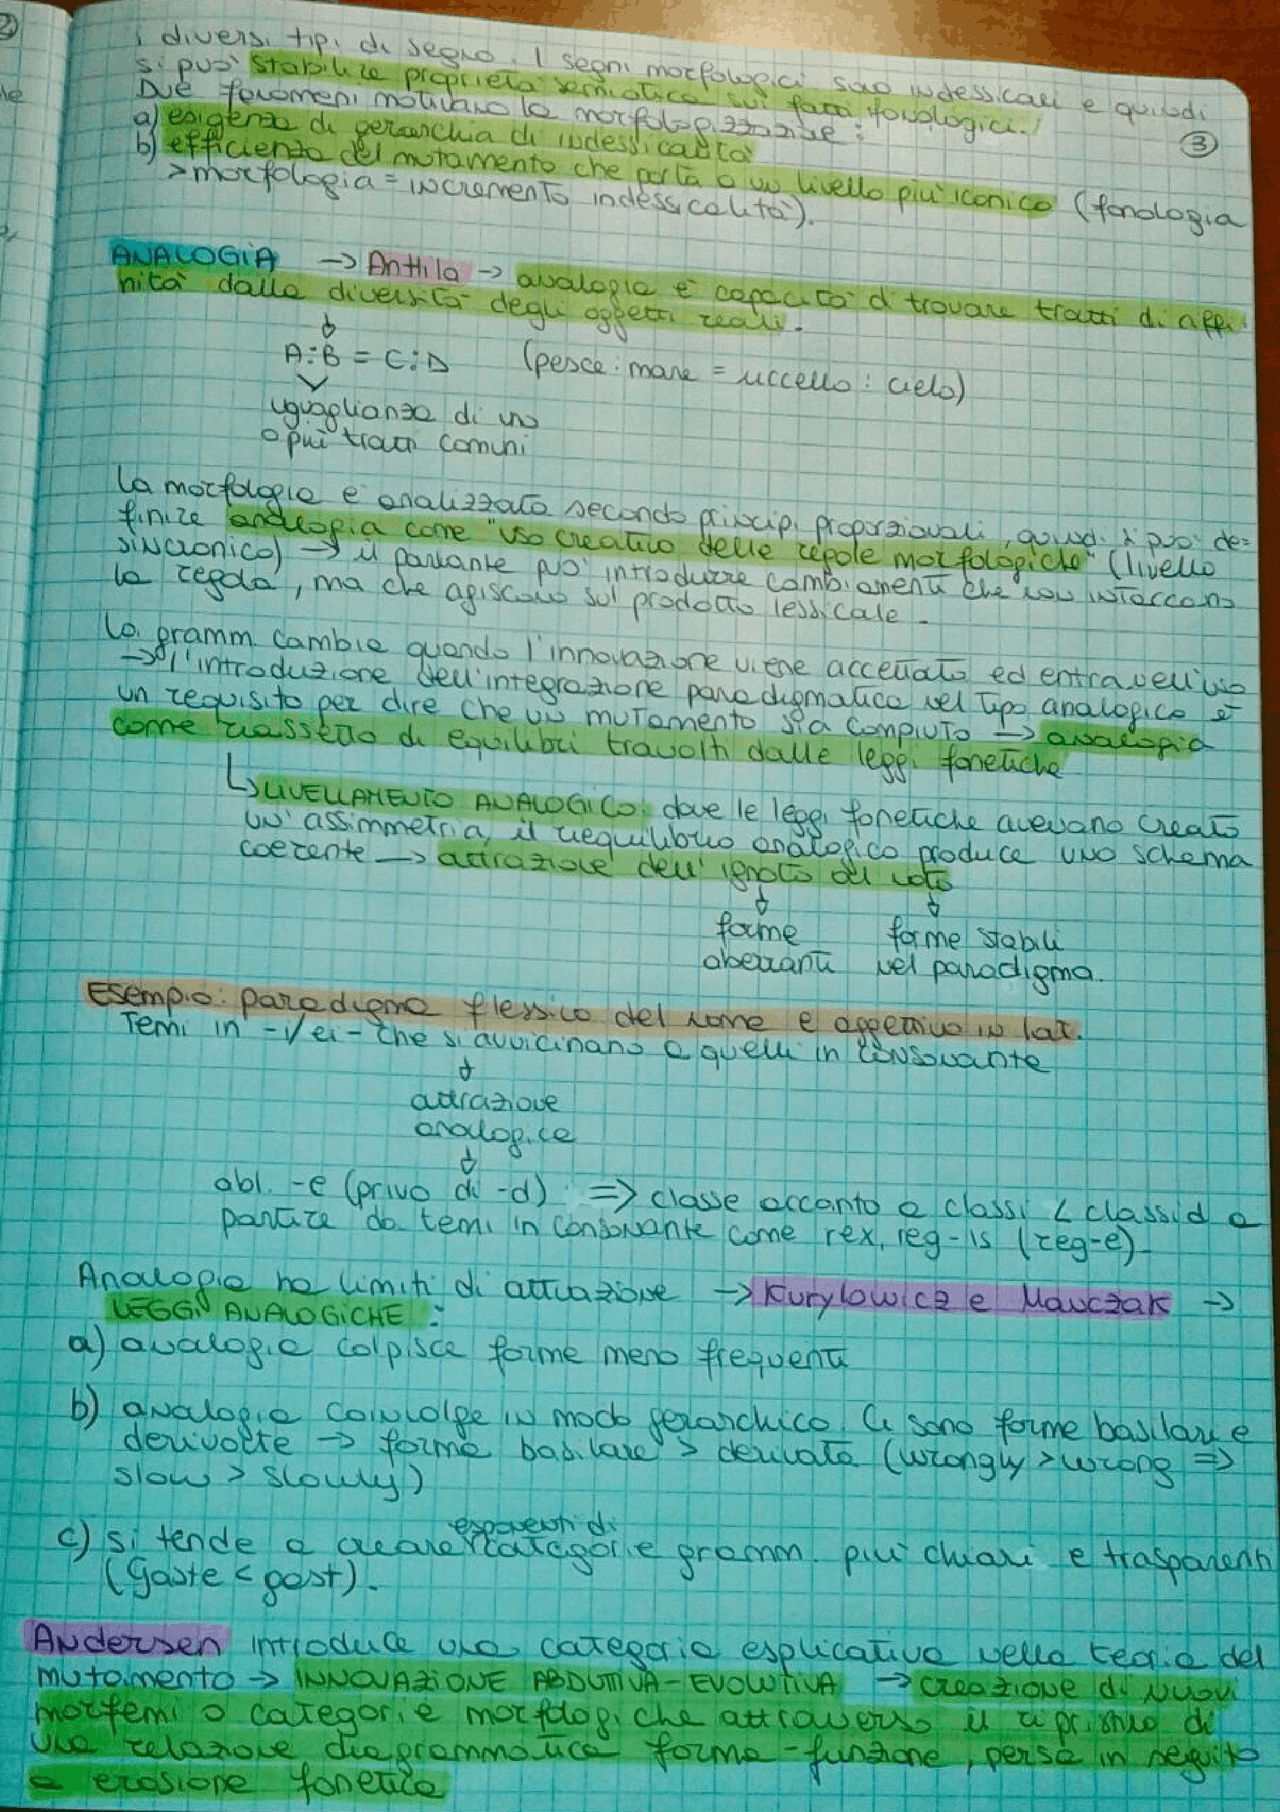 i diversi tipi di segno. I segni morfologici sono indessicali e quindi
si può stabilire proprietà semiotica sui fatti fonologici!
Due fenomeni motivano la morfologizzazione:
③
a) esigenza di gerarchia di indessicalità
b) efficienza del mutamento che porta a un livello più iconico (fonologia
> morfologia = incremento indessicalità).
ANALOGIA → Anttila → analogia è capacità d trovare tratti di affi-
nità dalla diversità degli oggetti reali.
A:B = C:D (pesce : mare = uccello : cielo)
uguaglianza di uno
o più tratti comuni
La morfologia è analizzata secondo principi proporzionali, quindi si può de=
finire analogia come "uso creativo delle regole morfologiche" (livello
sincronico) → il parlante può introdurre cambiamenti che non intaccano
la regola, ma che agiscono sul prodotto lessicale.
La gramm. cambia quando l'innovazione viene accettata ed entra nell'uso
→ l'introduzione dell'integrazione paradigmatica nel tipo analogico è
un requisito per dire che un mutamento sia compiuto → analogia
come riassetto di equilibri travolti dalle leggi fonetiche
↳ LIVELLAMENTO ANALOGICO: dove le leggi fonetiche avevano creato
un'assimmetria, il riequilibrio analogico produce uno schema
coerente → attrazione dell'ignoto al noto
forme forme stabili
aberranti nel paradigma.
Esempio: paradigma flessico del nome e aggettivo in lat.
Temi in -i/ei- che si avvicinano a quelli in consonante
attrazione
analogica
abl. -e (privo di -d) => classe accanto a classi < classid a
partire da temi in consonante come rex, reg-is (reg-e).
Analogia ha limiti di attuazione → Kurylowicz e Manczak →
LEGGI ANALOGICHE:
a) analogia colpisce forme meno frequenti
b) analogia coinvolge in modo gerarchico. Ci sono forme basilari e
derivate → forma basilare > derivata (wrongly > wrong =>
slow > slowly)
esponenti di
c) si tende a creare categorie gramm. più chiare e trasparenti
(Gäste < gast).
Andersen introduce una categoria esplicativa nella teoria del
mutamento → INNOVAZIONE ABDUTTIVA-EVOLUTIVA → creazione di nuovi
morfemi o categorie morfologiche attraverso il ripristino di
una relazione diagrammatica forma-funzione, persa in seguito
a erosione fonetica